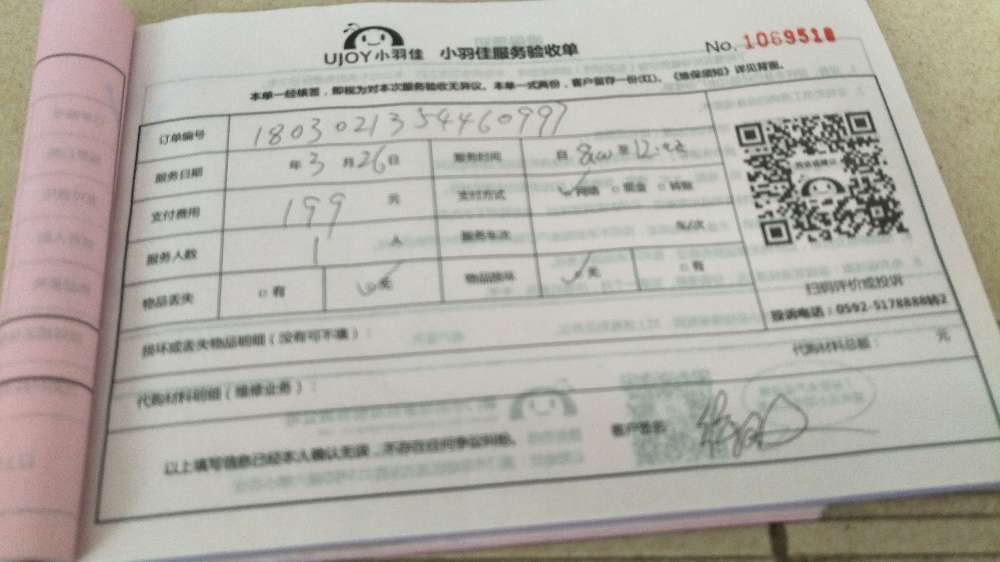 UJOY小羽佳 小羽佳服务验收单 No. 1069518
本单一经核签，即视为对本次服务验收无异议。本单一式两份，客户留存一份(红)。《维保须知》详见背面。
订单编号 1803021354460997
服务日期 年 3 月 26 日 服务时间 自 8:00 至 12:00
支付费用 199 元 支付方式 网络 □ 现金 □ 转账
服务人数 1 人 服务车次 车/次
物品丢失 □ 有 无 物品损坏 无 □ 有
扫码评价或投诉
投诉电话：0592-5178888转2
损坏或丢失物品明细（没有可不填）：
代购材料明细（维修业务）： 代购材料总额： 元
以上填写信息已经本人确认无误，不存在任何争议纠纷。 客户签名